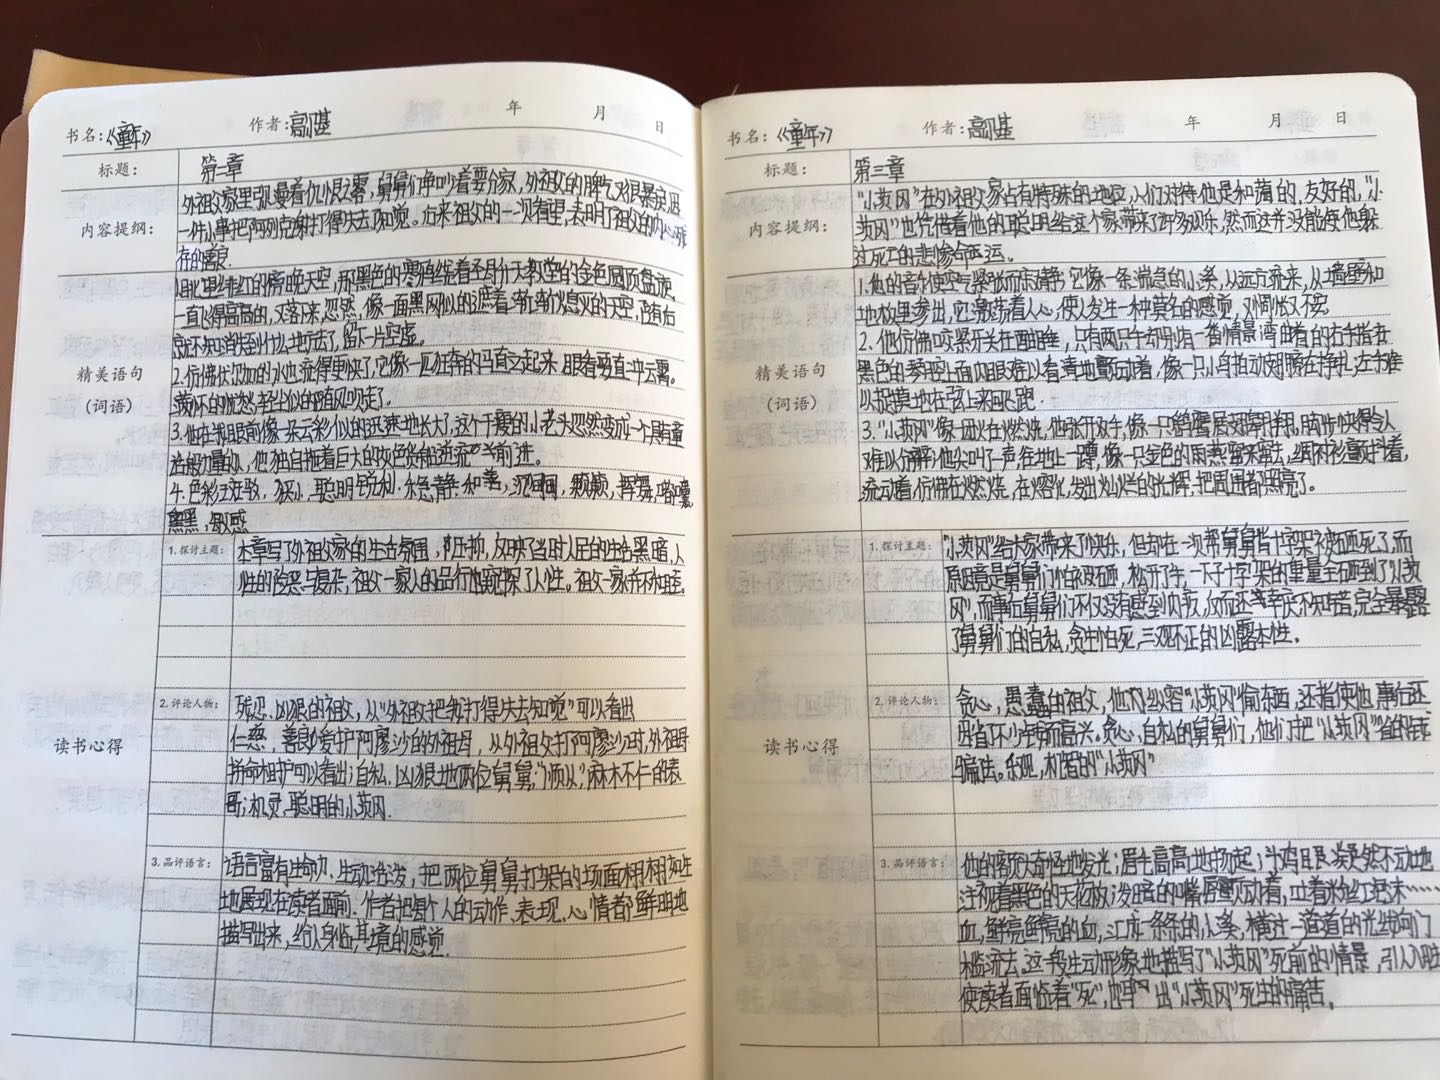 书名：《童年》 作者：高尔基 年 月 日
标题： 第二章
内容提纲：
外祖父家里弥漫着仇恨之雾，舅舅们争吵着要分家，外祖父的脾气对很暴戾，因
一件小事把阿列克谢打得失去知觉。后来祖父的一次看望，表明了祖父的内心所
存的善良.
精美语句
（词语）
1.
红的傍晚天空，那黑色的寒鸦绕着圣母升天教堂的金色圆顶盘旋，
一直飞得高高的，又落下来，忽然，像一面黑网似的遮着渐渐熄灭的天空，
不知消失到什么地方去了，留下一片空虚。
2.仿佛伏尔加的水也流得更快了，它像一匹狂奔的马直立起来，眼看要直冲云霄。
的忧愁，轻尘似的随风吹走了。
3.他在我眼前像一朵云彩似的迅速地长大了，这个干瘦的小老头忽然变成一个具有童
话般力量的人，他独自拖着巨大的灰色货船逆流而前进。
4.色彩斑驳、狭小、聪明锐利
和善
敏感
读书心得
1.探讨主题： 本章写了外祖父家的生活氛围，
反映了当时人民的生活黑暗，人
性的险恶与复杂，祖父一家人的品行也
了人性。祖父一家亦不和睦。
2.评论人物： 残忍、凶狠的祖父，从“外祖父把我打得失去知觉”可以看出
仁慈，善良、爱护阿廖沙的外祖母，从外祖父打阿廖沙时，外祖母
拼命袒护可以看出；自私，凶狠地两位舅舅；
麻木不仁的表
哥；机灵，聪明的小茨冈.
3.品评语言： 语言富有生命力，生动活泼，把两位舅舅打架的场面栩栩如生
地展现在读者面前. 作者把每个人的动作、表现、心情都鲜明地
描写出来，给人身临其境的感觉.
书名：《童年》 作者：高尔基 年 月 日
标题： 第三章
内容提纲：
“小茨冈”在外祖父家占有特殊的地位，人们对待他是和蔼的，友好的，“小
茨冈”也凭借着他的聪明给这个家带来了许多欢乐，然而这并没能使他躲
过死亡的悲惨命运。
精美语句
（词语）
1.他的音乐使空气紧张而宁静，它像一条湍急的小溪，从远方流来，从墙壁和
地板里渗出，它激荡着人心，使人发生一种莫名的感觉，又惆怅又不安
2.他仿佛
只有两只手却别有一番情景：弯曲着的右手指在
黑色的琴把上面以肉眼难以看清地颤动着，像一只小鸟拍动翅膀在挣扎；左手难
以捉摸地在弦上来回飞跑.
3.“小茨冈”像一团火在燃烧，他张开双手，像一只鹞鹰展翅翱翔，脚步快得令人
难以分辨；他尖叫了一声，往地上一蹲，像一只金色的雨燕窜来窜去，丝绸衬衫颤抖着，
流动着，仿佛在燃烧，在熔化，发出灿烂的光辉，把周围都照亮了。
读书心得
1.探讨主题： “小茨冈”给大家带来了快乐，但却在一次帮舅舅背十字架被砸死了，而
原因竟是舅舅们怕被砸，松开了手，一下子十字架的重量全砸到了“小茨
冈”，而事后舅舅们不仅没有感到内疚，反而还
完全暴露
了舅舅们的自私，贪生怕死，三观不正的凶露本性。
2.评论人物： 贪心，愚蠢的祖父，他不仅纵容“小茨冈”偷东西，还指使他，事后还
因省下不少钱而高兴。贪心，自私的舅舅们，
乐观，机智的“小茨冈”
3.品评语言： 他的额头奇怪地发光；眉毛高高地扬起；斗鸡眼突然不动地
注视着黑色的天花板；发暗的嘴唇颤动着，吐着粉红泡沫……
血，鲜亮鲜亮的血，汇成一条条的小溪，横过一道道的光线向门
槛流去，这一段生动形象地描写了“小茨冈”死前的情景，引人入胜
使读者面临着“死”，
出“小茨冈”死去的痛苦。